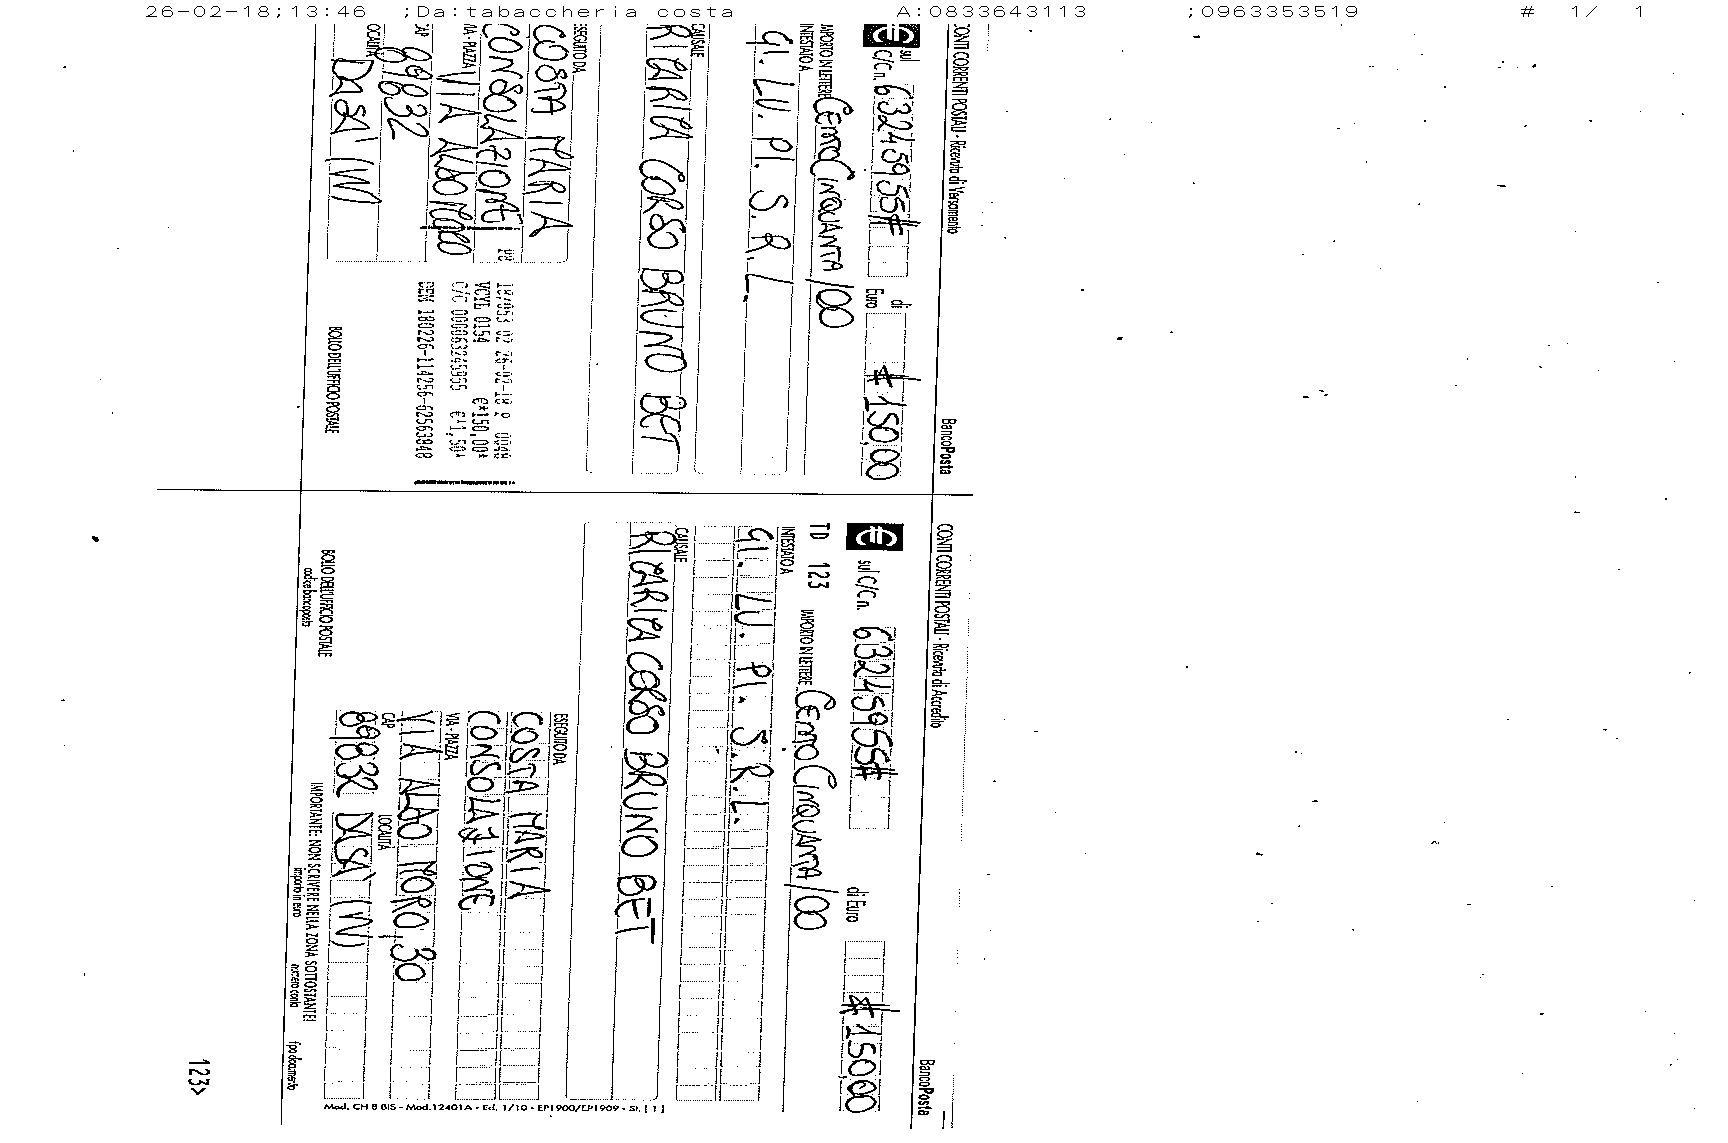 26-02-18;13:46 ;Da:tabaccheria costa A:0833643113 ;0963353519 # 1/ 1
CONTI CORRENTI POSTALI - Ricevuta di Versamento
BancoPosta
sul C/C n. 63245955# di Euro #150,00
IMPORTO IN LETTERE CENTOCINQUANTA/00
INTESTATO A
GI. LU. PI. S. R. L.
CAUSALE
RICARICA CORSO BRUNO BET
ESEGUITO DA
COSTA MARIA
CONSOLAZIONE
VIA - PIAZZA
VIA ALDO MORO
CAP
89832
LOCALITÀ
DASA' (VV)
18/053 02 26-02-18
VCYL 0154 €*150,00*
C/C 000063245955 €*1,50*
DEN 180226-114256-62563848
BOLLO DELL'UFFICIO POSTALE
CONTI CORRENTI POSTALI - Ricevuta di Accredito
BancoPosta
sul C/C n. 63245955# di Euro #150,00
TD 123 IMPORTO IN LETTERE CENTOCINQUANTA/00
INTESTATO A
GI. LU. PI. S. R. L.
CAUSALE
RICARICA CORSO BRUNO BET
ESEGUITO DA
COSTA MARIA
CONSOLAZIONE
VIA - PIAZZA
VIA ALDO MORO, 30
CAP LOCALITÀ
89832 DASA' (VV)
BOLLO DELL'UFFICIO POSTALE
codice bancoposta
IMPORTANTE: NON SCRIVERE NELLA ZONA SOTTOSTANTE!
importo in euro numero conto tipo documento
123>
Mod. CH 8 BIS - Mod.12401A - Ed. 1/10 - EP1900/EP1909 - St. [ 1 ]